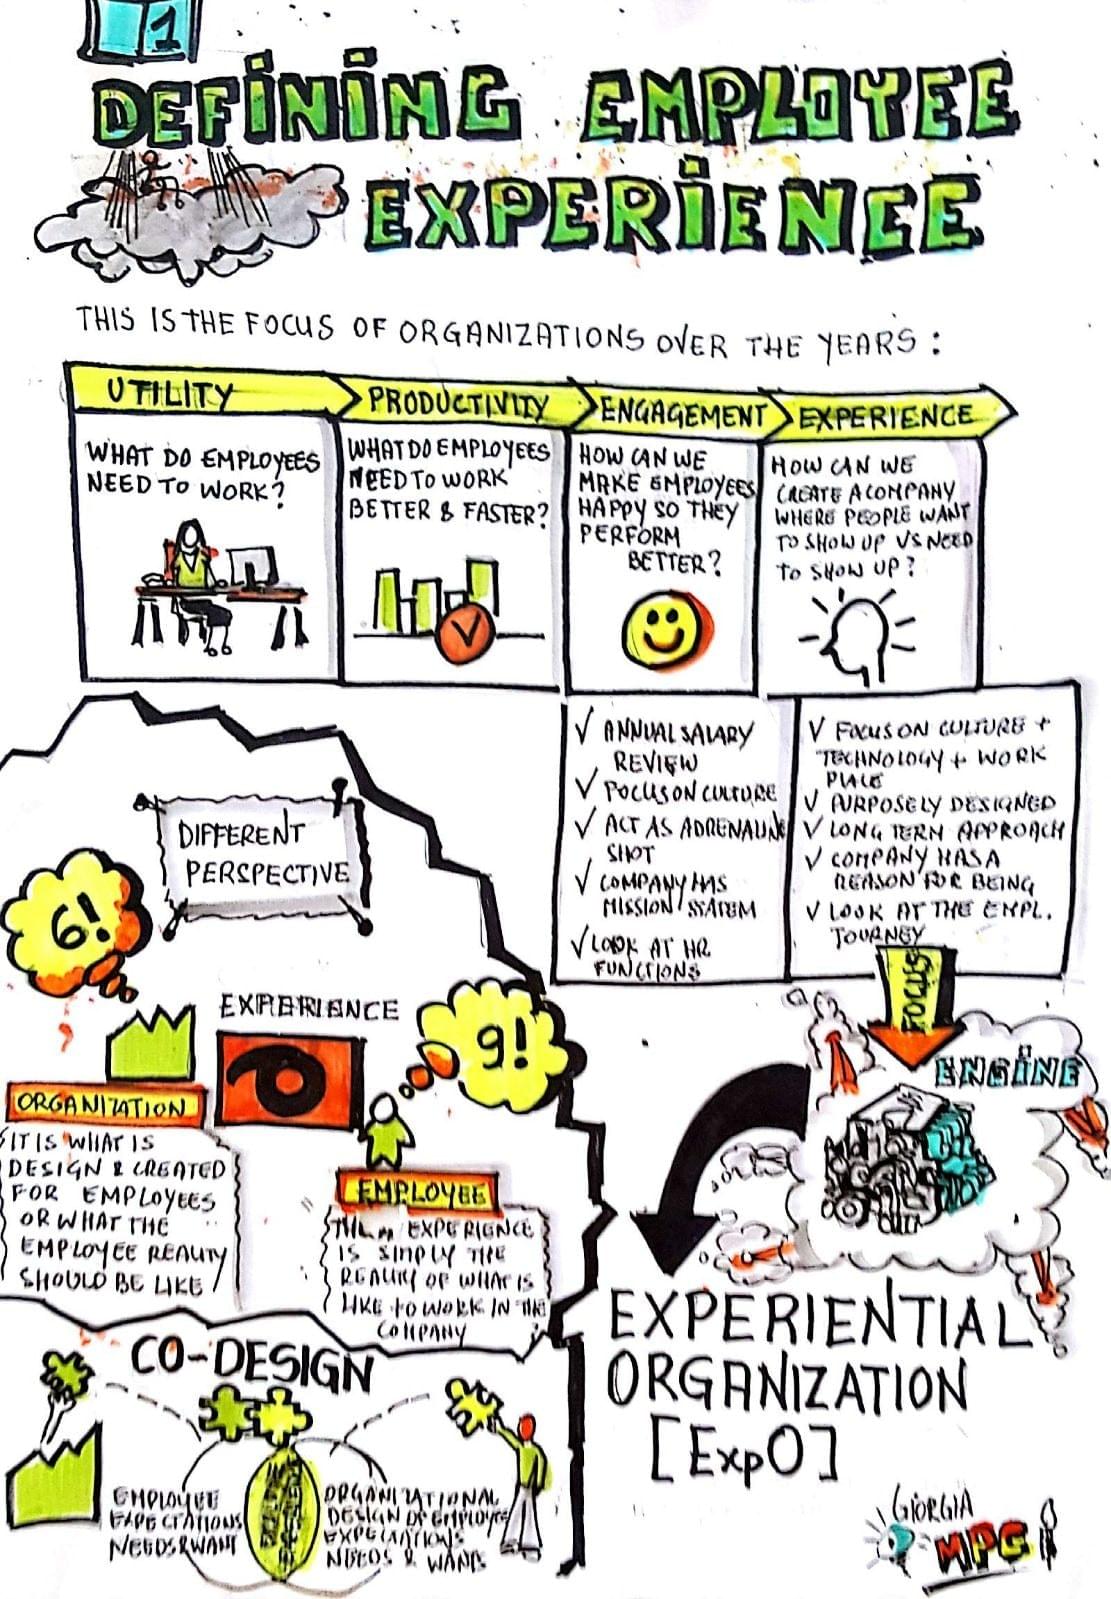 1
DEFINING EMPLOYEE
EXPERIENCE
THIS IS THE FOCUS OF ORGANIZATIONS OVER THE YEARS:
UTILITY
WHAT DO EMPLOYEES
NEED TO WORK?
PRODUCTIVITY
WHAT DO EMPLOYEES
NEED TO WORK
BETTER & FASTER?
ENGAGEMENT
HOW CAN WE
MAKE EMPLOYEES
HAPPY SO THEY
PERFORM
BETTER?
EXPERIENCE
HOW CAN WE
CREATE A COMPANY
WHERE PEOPLE WANT
TO SHOW UP VS NEED
TO SHOW UP?
✓ ANNUAL SALARY
REVIEW
✓ FOCUS ON CULTURE
✓ ACT AS ADRENALINE
SHOT
✓ COMPANY HAS
MISSION STATEM
✓ LOOK AT HR
FUNCTIONS
✓ FOCUS ON CULTURE +
TECHNOLOGY + WORK
PLACE
✓ PURPOSELY DESIGNED
✓ LONG TERM APPROACH
✓ COMPANY HAS A
REASON FOR BEING
✓ LOOK AT THE EMPL.
JOURNEY
FOCUS
ENGINE
EXPERIENTIAL
ORGANIZATION
[ExpO]
DIFFERENT
PERSPECTIVE
6!
EXPERIENCE
9!
ORGANIZATION
IT IS WHAT IS
DESIGN & CREATED
FOR EMPLOYEES
OR WHAT THE
EMPLOYEE REALITY
SHOULD BE LIKE
EMPLOYEE
EXPERIENCE
IS SIMPLY THE
REALITY OF WHAT IS
LIKE TO WORK IN THE
COMPANY
CO-DESIGN
EMPLOYEE
EXPECTATIONS
NEEDS & WANT
ORGANIZATIONAL
DESIGN OF EMPLOYEE
EXPECTATIONS
NEEDS & WANTS
GIORGIA
MPG